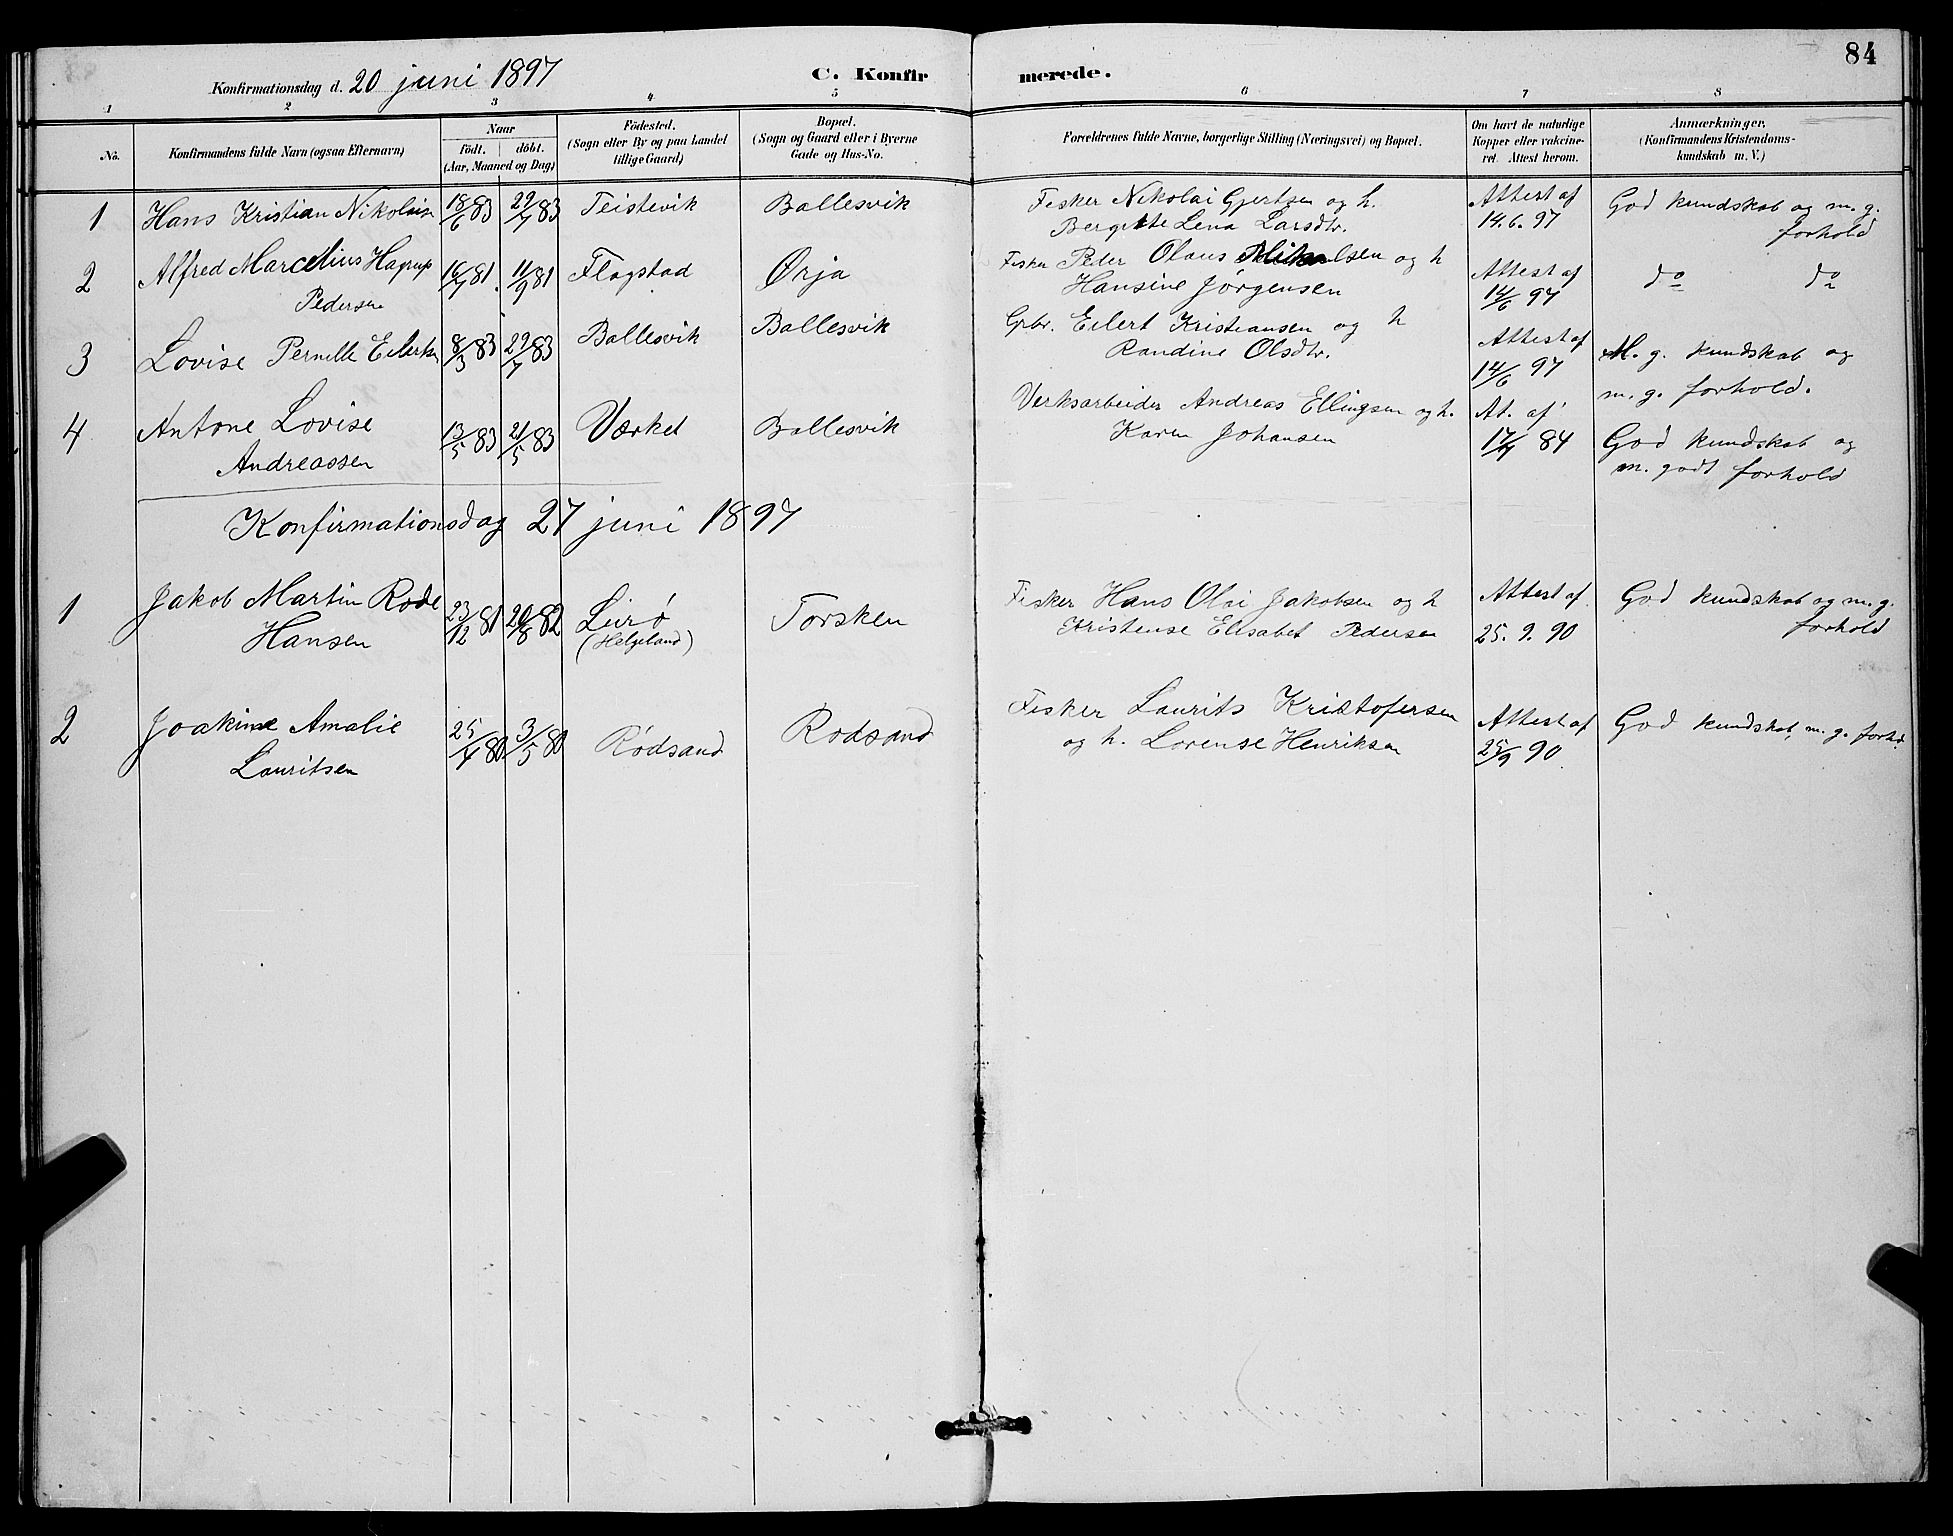 84
Konfirmationsdag d. 20 juni 1897 C. Konfirmerede.
1 2 3 4 5 6 7 8
No.
Konfirmandens fulde Navn (ogsaa Efternavn)
Naar
født. døbt.
(Aar, Maaned og Dag)
Födested.
(Sogn eller By og paa Landet
tillige Gaard)
Bopæl.
(Sogn og Gaard eller i Byerne
Gade og Hus-No.
Forældrenes fulde Navne, borgerlige Stilling (Næringsvei) og Bopæl.
Om havt de naturlige
Kopper eller vakcine-
ret. Attest herom.
Anmærkninger.
(Konfirmandens Kristendoms-
kundskab m. V.)
1 Hans Kristian Nikolaisen 18/6 83 29/7 83 Teistevik Ballesvik Fisker Nikolai Gjertsen og h. Attest af God kundskab og m. g.
Bergitte Lena Larsdtr. 14.6.97 forhold
2 Alfred Marcelius Hagrup 16/7 81. 11/9 81 Flagstad Ørja Fisker Peder Olaus Mikalsen og h Attest af do do
Pedersen Hansine Jørgensen 14/6 97
3 Lovise Pernille Eilertsen 8/3 83 29/7 83 Ballesvik Ballesvik Gbr. Eilert Kristiansen og h Attest af M. g. kundskab og
Randine Olsdtr. 14/6 97 m. g. forhold.
4 Antone Lovise 13/5 83 21/5 83 Værket Ballesvik Verksarbeider Andreas Ellingsen og h. At. af God kundskab og
Andreassen Karen Johansen 17/7 84 m. godt forhold
Konfirmationsdag 27 juni 1897
1 Jakob Martin Rode 23/12 81 20/8 82 Lurø Torsken Fisker Hans Olai Jakobsen og h Attest af God kundskab og m. g.
Hansen (Helgeland) Kristense Elisabet Pedersen 25. 9. 90 forhold
2 Joakime Amalie 25/4 80 3/5 80 Rødsand Rødsand Fisker Laurits Kristofersen Attest af God kundskab, m. g. forhd.
Lauritsen og h. Lorense Henriksen 25/9 90